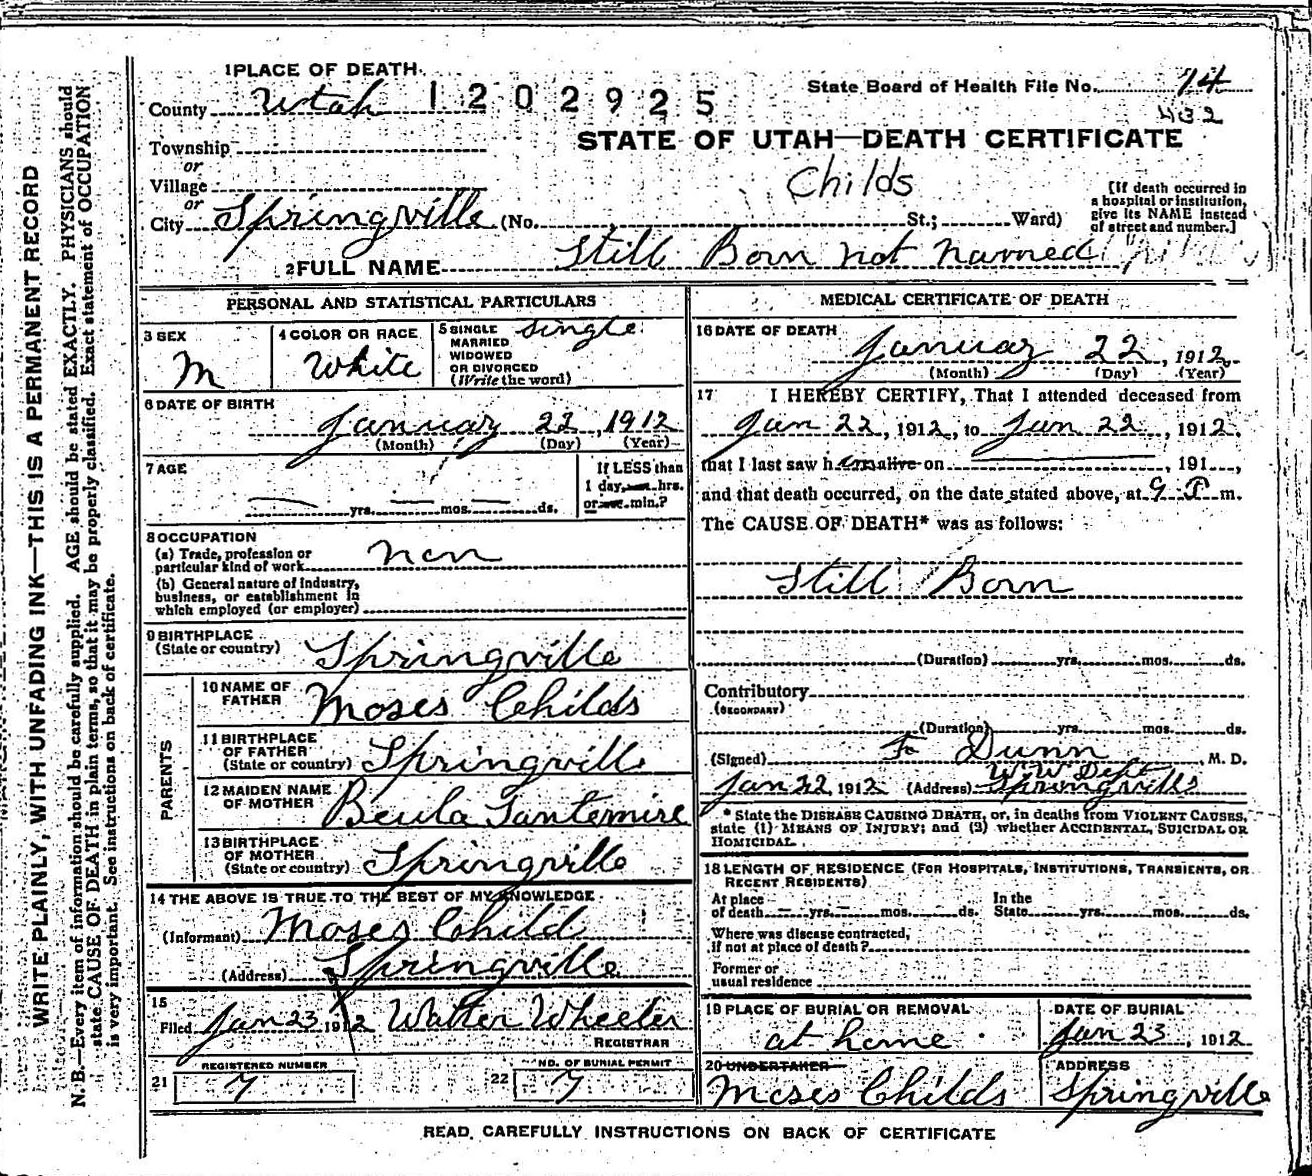 1 PLACE OF DEATH
County Utah 1202925
State Board of Health File No. 14
432
STATE OF UTAH—DEATH CERTIFICATE
Township
or
Village
or
Childs
City Springville (No. St.; Ward)
[If death occurred in a hospital or institution, give its NAME instead of street and number.]
2 FULL NAME Still Born not named
PERSONAL AND STATISTICAL PARTICULARS
3 SEX
M
4 COLOR OR RACE
White
5 SINGLE MARRIED WIDOWED OR DIVORCED (Write the word)
single
6 DATE OF BIRTH
January 22, 1912
(Month) (Day) (Year)
7 AGE
yrs. mos. ds.
If LESS than 1 day, hrs. or min.?
8 OCCUPATION
(a) Trade, profession or particular kind of work non
(b) General nature of industry, business, or establishment in which employed (or employer)
9 BIRTHPLACE (State or country) Springville
PARENTS
10 NAME OF FATHER Moses Childs
11 BIRTHPLACE OF FATHER (State or country) Springville
12 MAIDEN NAME OF MOTHER Beula Santemire
13 BIRTHPLACE OF MOTHER (State or country) Springville
14 THE ABOVE IS TRUE TO THE BEST OF MY KNOWLEDGE
(Informant) Moses Child
(Address) Springville
15
Filed Jan 23 1912 Walter Wheeler
REGISTRAR
21 REGISTERED NUMBER 7
22 NO. OF BURIAL PERMIT 7
MEDICAL CERTIFICATE OF DEATH
16 DATE OF DEATH
January 22, 1912
(Month) (Day) (Year)
17 I HEREBY CERTIFY, That I attended deceased from
Jan 22, 1912, to Jan 22, 1912,
that I last saw h em alive on , 191 ,
and that death occurred, on the date stated above, at 9 P m.
The CAUSE OF DEATH* was as follows:
Still Born
(Duration) yrs. mos. ds.
Contributory
(SECONDARY)
(Duration) yrs. mos. ds.
(Signed) Dunn, M. D.
Jan 22, 1912 (Address) Springville
* State the DISEASE CAUSING DEATH, or, in deaths from VIOLENT CAUSES,
state (1) MEANS OF INJURY; and (2) whether ACCIDENTAL, SUICIDAL OR
HOMICIDAL.
18 LENGTH OF RESIDENCE (FOR HOSPITALS, INSTITUTIONS, TRANSIENTS, OR
RECENT RESIDENTS)
At place of death yrs. mos. ds. In the State yrs. mos. ds.
Where was disease contracted, if not at place of death?
Former or usual residence
19 PLACE OF BURIAL OR REMOVAL
at home
DATE OF BURIAL
Jan 23, 1912
20 UNDERTAKER
Moses Childs
ADDRESS
Springville
READ CAREFULLY INSTRUCTIONS ON BACK OF CERTIFICATE
WRITE PLAINLY, WITH UNFADING INK—THIS IS A PERMANENT RECORD
N. B.—Every item of information should be carefully supplied. AGE should be stated EXACTLY. PHYSICIANS should
state CAUSE OF DEATH in plain terms, so that it may be properly classified. Exact statement of OCCUPATION
is very important. See instructions on back of certificate.